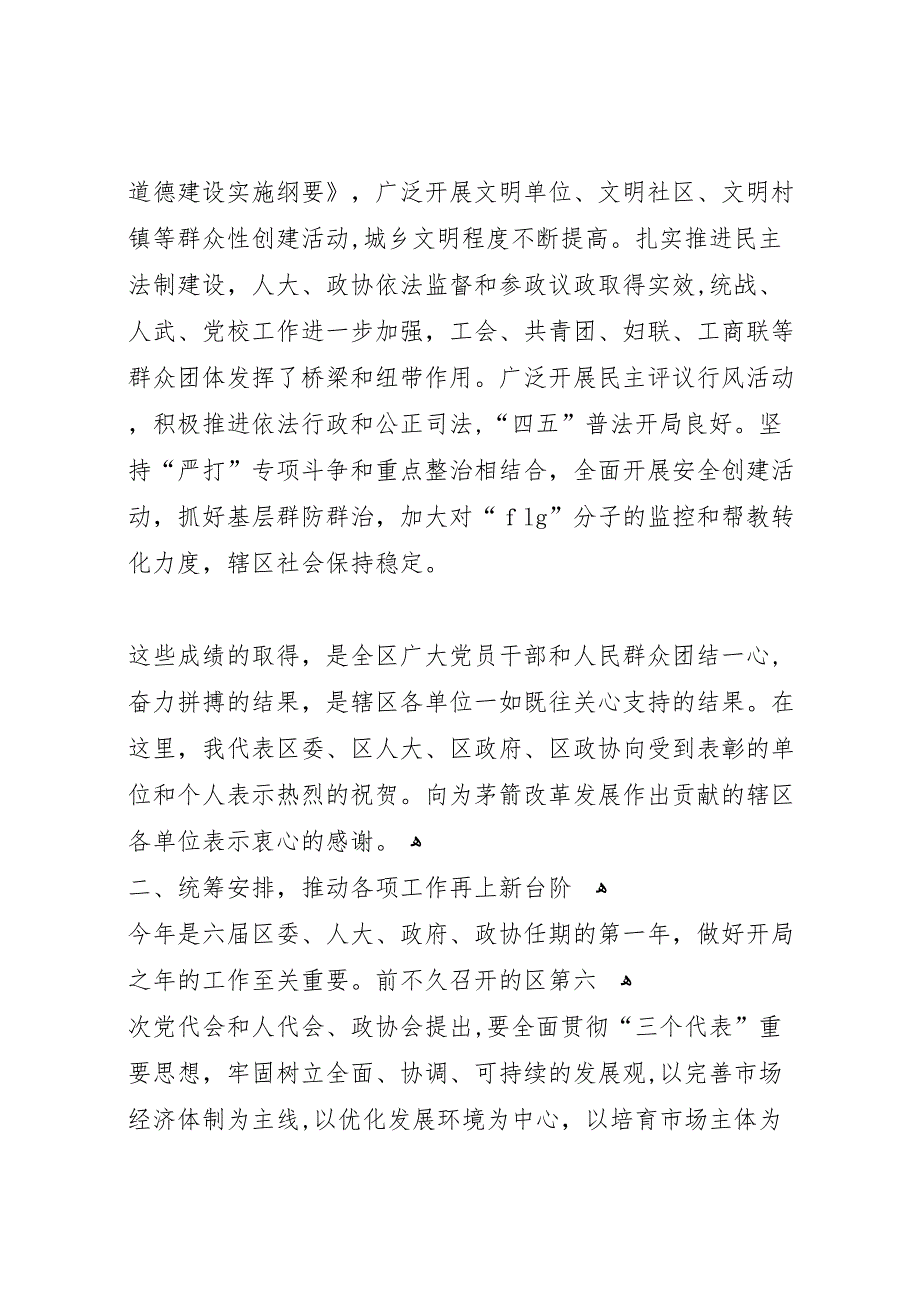 道德建设实施纲要》，广泛开展文明单位、文明社区、文明村
镇等群众性创建活动,城乡文明程度不断提高。扎实推进民主
法制建设，人大、政协依法监督和参政议政取得实效,统战、
人武、党校工作进一步加强，工会、共青团、妇联、工商联等
群众团体发挥了桥梁和纽带作用。广泛开展民主评议行风活动
，积极推进依法行政和公正司法,“四五”普法开局良好。坚
持“严打”专项斗争和重点整治相结合，全面开展安全创建活
动，抓好基层群防群治，加大对“ flg”分子的监控和帮教转
化力度，辖区社会保持稳定。
这些成绩的取得，是全区广大党员干部和人民群众团结一心,
奋力拼搏的结果，是辖区各单位一如既往关心支持的结果。在
这里，我代表区委、区人大、区政府、区政协向受到表彰的单
位和个人表示热烈的祝贺。向为茅箭改革发展作出贡献的辖区
各单位表示衷心的感谢。 ﻫ
二、统筹安排，推动各项工作再上新台阶 ﻫ
今年是六届区委、人大、政府、政协任期的第一年，做好开局
之年的工作至关重要。前不久召开的区第六 ﻫ
次党代会和人代会、政协会提出,要全面贯彻“三个代表”重
要思想，牢固树立全面、协调、可持续的发展观,以完善市场
经济体制为主线,以优化发展环境为中心，以培育市场主体为